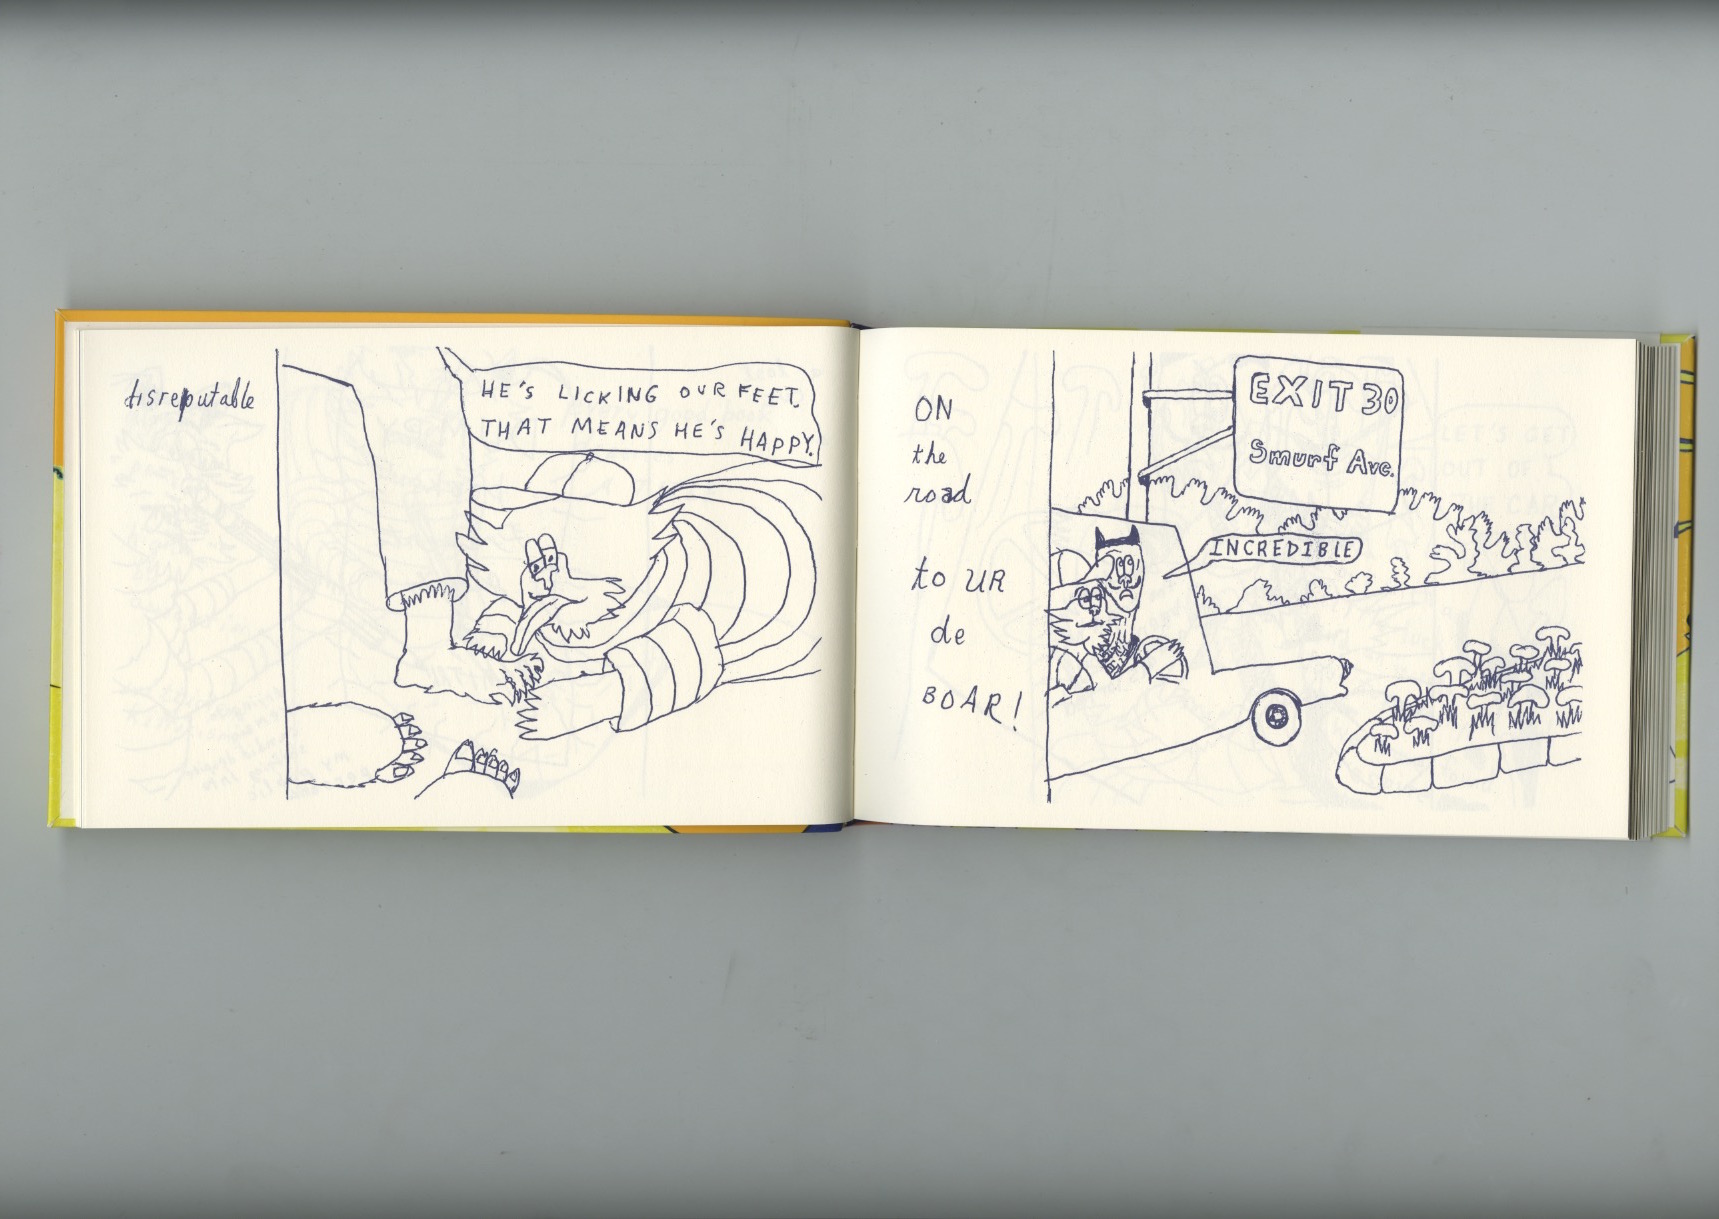 disreputable
HE'S LICKING OUR FEET.
THAT MEANS HE'S HAPPY.
ON
the
road
to UR
de
BOAR!
EXIT 30
Smurf Ave.
INCREDIBLE